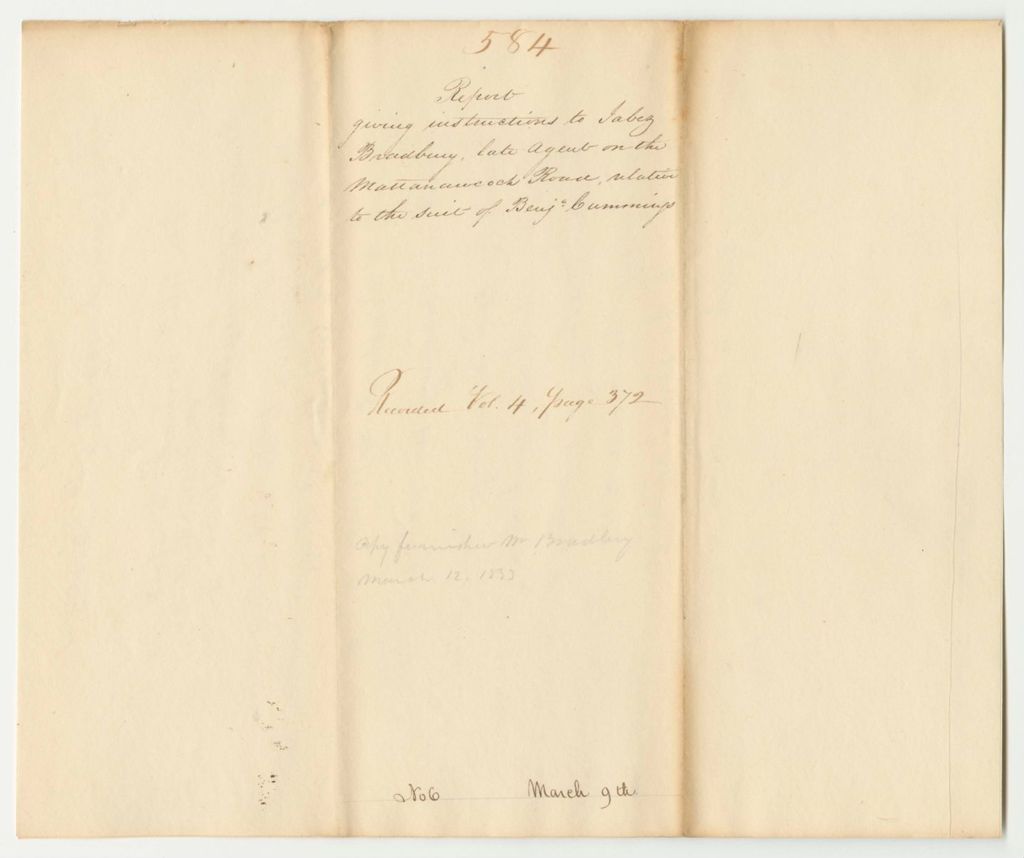 584
Report
giving instructions to Jabez
Bradbury, late Agent on the
Mattanawcook Road, relative
to the suit of Benjᵃ Cummings
Recorded Vol. 4, page 372
Copy furnished Mr Bradbury
March 12, 1833
No 6 March 9th